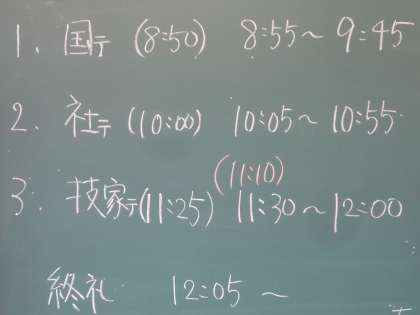 1. 国テ (8:50) 8:55〜9:45
2. 社テ (10:00) 10:05〜10:55
(11:10)
3. 技家テ(11:25) 11:30〜12:00
終礼 12:05〜